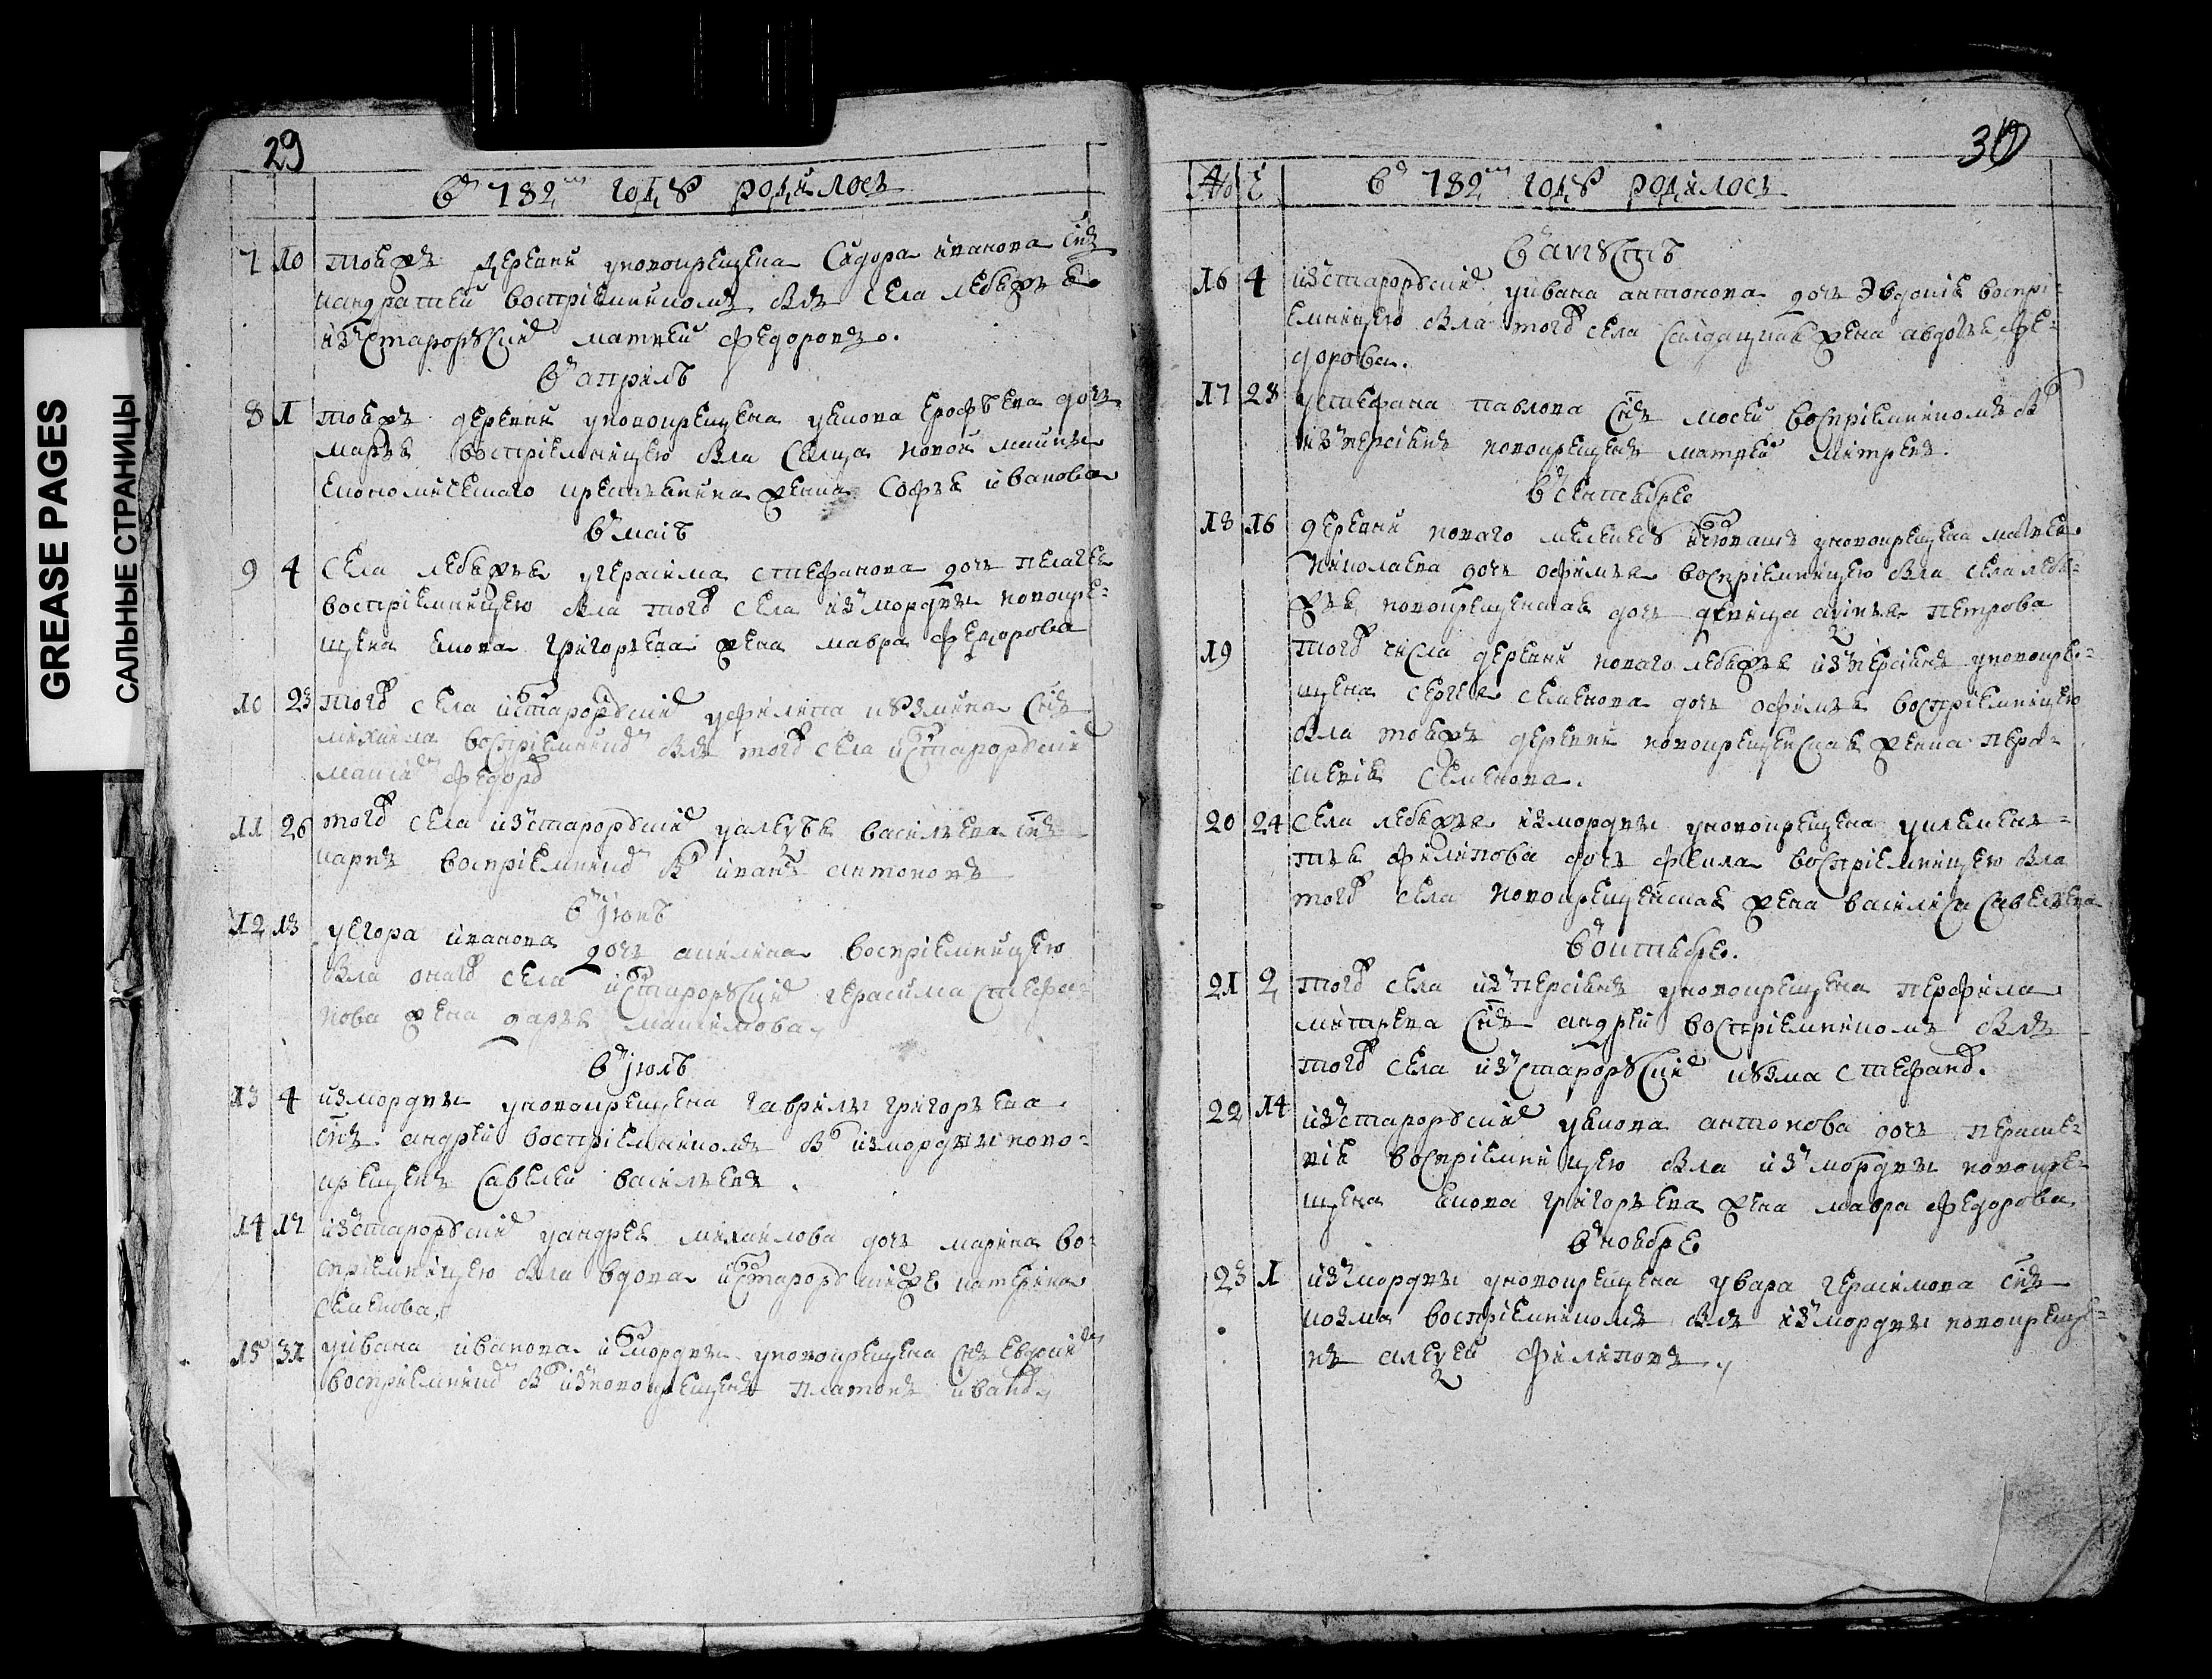 GREASE PAGES
САЛЬНЫЕ СТРАНИЦЫ
29
въ 782м году родилось
7 10 тоежъ деревни уновокрещена Сидора иванова снъ
кандратей воспріемникомъ былъ села лебяжья
изъстарорускихъ матвей федоровъ.
въ априлѣ
8 1 тоежъ деревни уновокрещена уякова ерофѣева дочь
марья воспріемницею была Селца новой майны
економическаго крестьянина жена софья иванова
въ маіѣ
9 4 Села лебяжья угерасима стефанова дочь пелагея
воспріемницею была тогожъ села изъмордвы новокре-
щена якова григорьева жена мавра федорова
10 23 тогожъ села изстарорускихъ уфилипа кузмина снъ
михаила воспріемникъ былъ тогожъ села изстарорускихъ
федоръ
11 26 тогожъ села изъстарорускихъ уалеѯѣя васильева снъ
карпъ воспріемникъ бы иванъ антоновъ
въ іюнѣ
12 13 уегора иванова дочь акилина воспріемницею
была онагожъ села изстарорускихъ герасима стефа-
нова жена дарья максимова
въ іюлѣ
13 4 измордвы уновокрещена гаврилы григорьева
снъ андрей воспріемникомъ бы измордвы ново-
крещенъ савелей васильевъ.
14 17 изъстарорускихъ уандрея михаилова дочь марина во-
спріемницею была вдова изстарорускихъже катерина
семенова
15 31 уивана иванова измордвы уновокрещена снъ
воспріемникъ бы изновокрещенъ платонъ иванъ
30
№ ч въ 782м году родилось
въ августѣ
16 4 изъстарорускихъ уивана антонова дочь Эвдокія воспрі-
емницею была тогожъ села салдацкая жена авдотья фе-
дорова.
17 28 устефана павлова снъ мосей воспріемникомъ бы
изъперсіянъ новокрещенъ матвей митревъ.
въ сентябре
18 16 деревни новаго уновокрещена матвея
николаева дочь офимья воспріемницею была села лебя-
жья новокрещенская дочь девица анна петрова
19 тогожъ числа деревни новаго лебяжья изъперсіянъ уновокре-
щена сергея семенова дочь офимья воспріемницею
была тоежъ деревни новокрещенская жена пера-
скевія семенова.
20 24 села лебяжья измордвы уновокрещена уклемень-
тья филипова дочь фекла воспріемницею была
тогожъ села новокрещенская жена василиса савельева
въ октябре.
21 2 тогожъ села изъперсіянъ уновокрещена перфила
митрева снъ андрей воспріемникомъ былъ
тогожъ села изъстарорускихъ кузма стефанъ.
22 14 изъстарорускихъ уякова антонова дочь параске-
вія воспріемницею была изъмордвы новокре-
щена якова григорьева жена мавра федорова
въ ноябре
23 1 изъмордвы уновокрещена увара герасимова снъ
козма воспріемникомъ былъ измордвы новокреще-
нъ алеѯей филиповъ